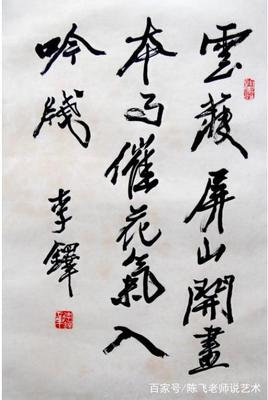 雲護屏山開畫
本雨催花氣入
吟牋 李鐸
百家号/陈飞老师说艺术